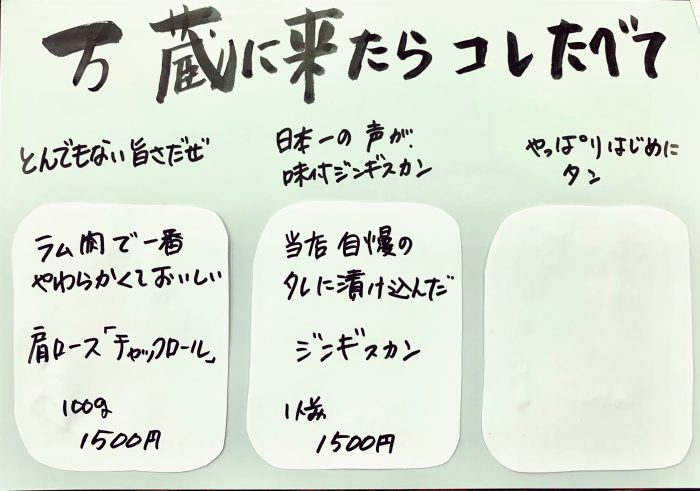 万蔵に来たらコレたべて
とんでもない旨さだぜ
日本一の声が.
味付ジンギスカン
やっぱりはじめに
タン
ラム肉で一番
やわらかくておいしい
肩ロース「チャックロール」
100g
1500円
当店自慢の
タレに漬け込んだ
ジンギスカン
1人前
1500円